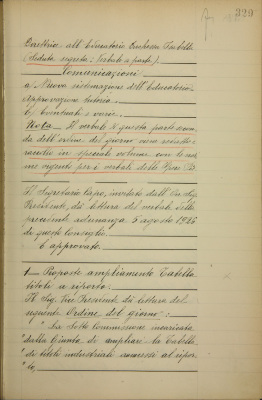 329
Direttrice dell'Educatorio Duchessa Isabella
(Seduta segreta - Verbale a parte).
Comunicazioni
a. Nuova sistemazione dell'Educatorio.
Approvazione tutoria.
b) Eventuali e varie.
Nota - Il verbale di questa parte secon-
da dell'ordine del giorno viene
in speciale volume con le nor-
me vigenti per i verbali delle
Il Segretario Capo, invitato dall'On. Sig.
Presidente, dà lettura del verbale della
precedente adunanza 5 agosto 1926
di questo Consiglio.
È approvato.
1 - Proposte ampliamento Tabella
titoli a riporto.
Il Sig. Presidente dà lettura del
seguente Ordine del giorno:
"La Sotto Commissione incaricata
"dalla Giunta di ampliare la Tabella
"di titoli industriali ammessi al ripor-
"to,